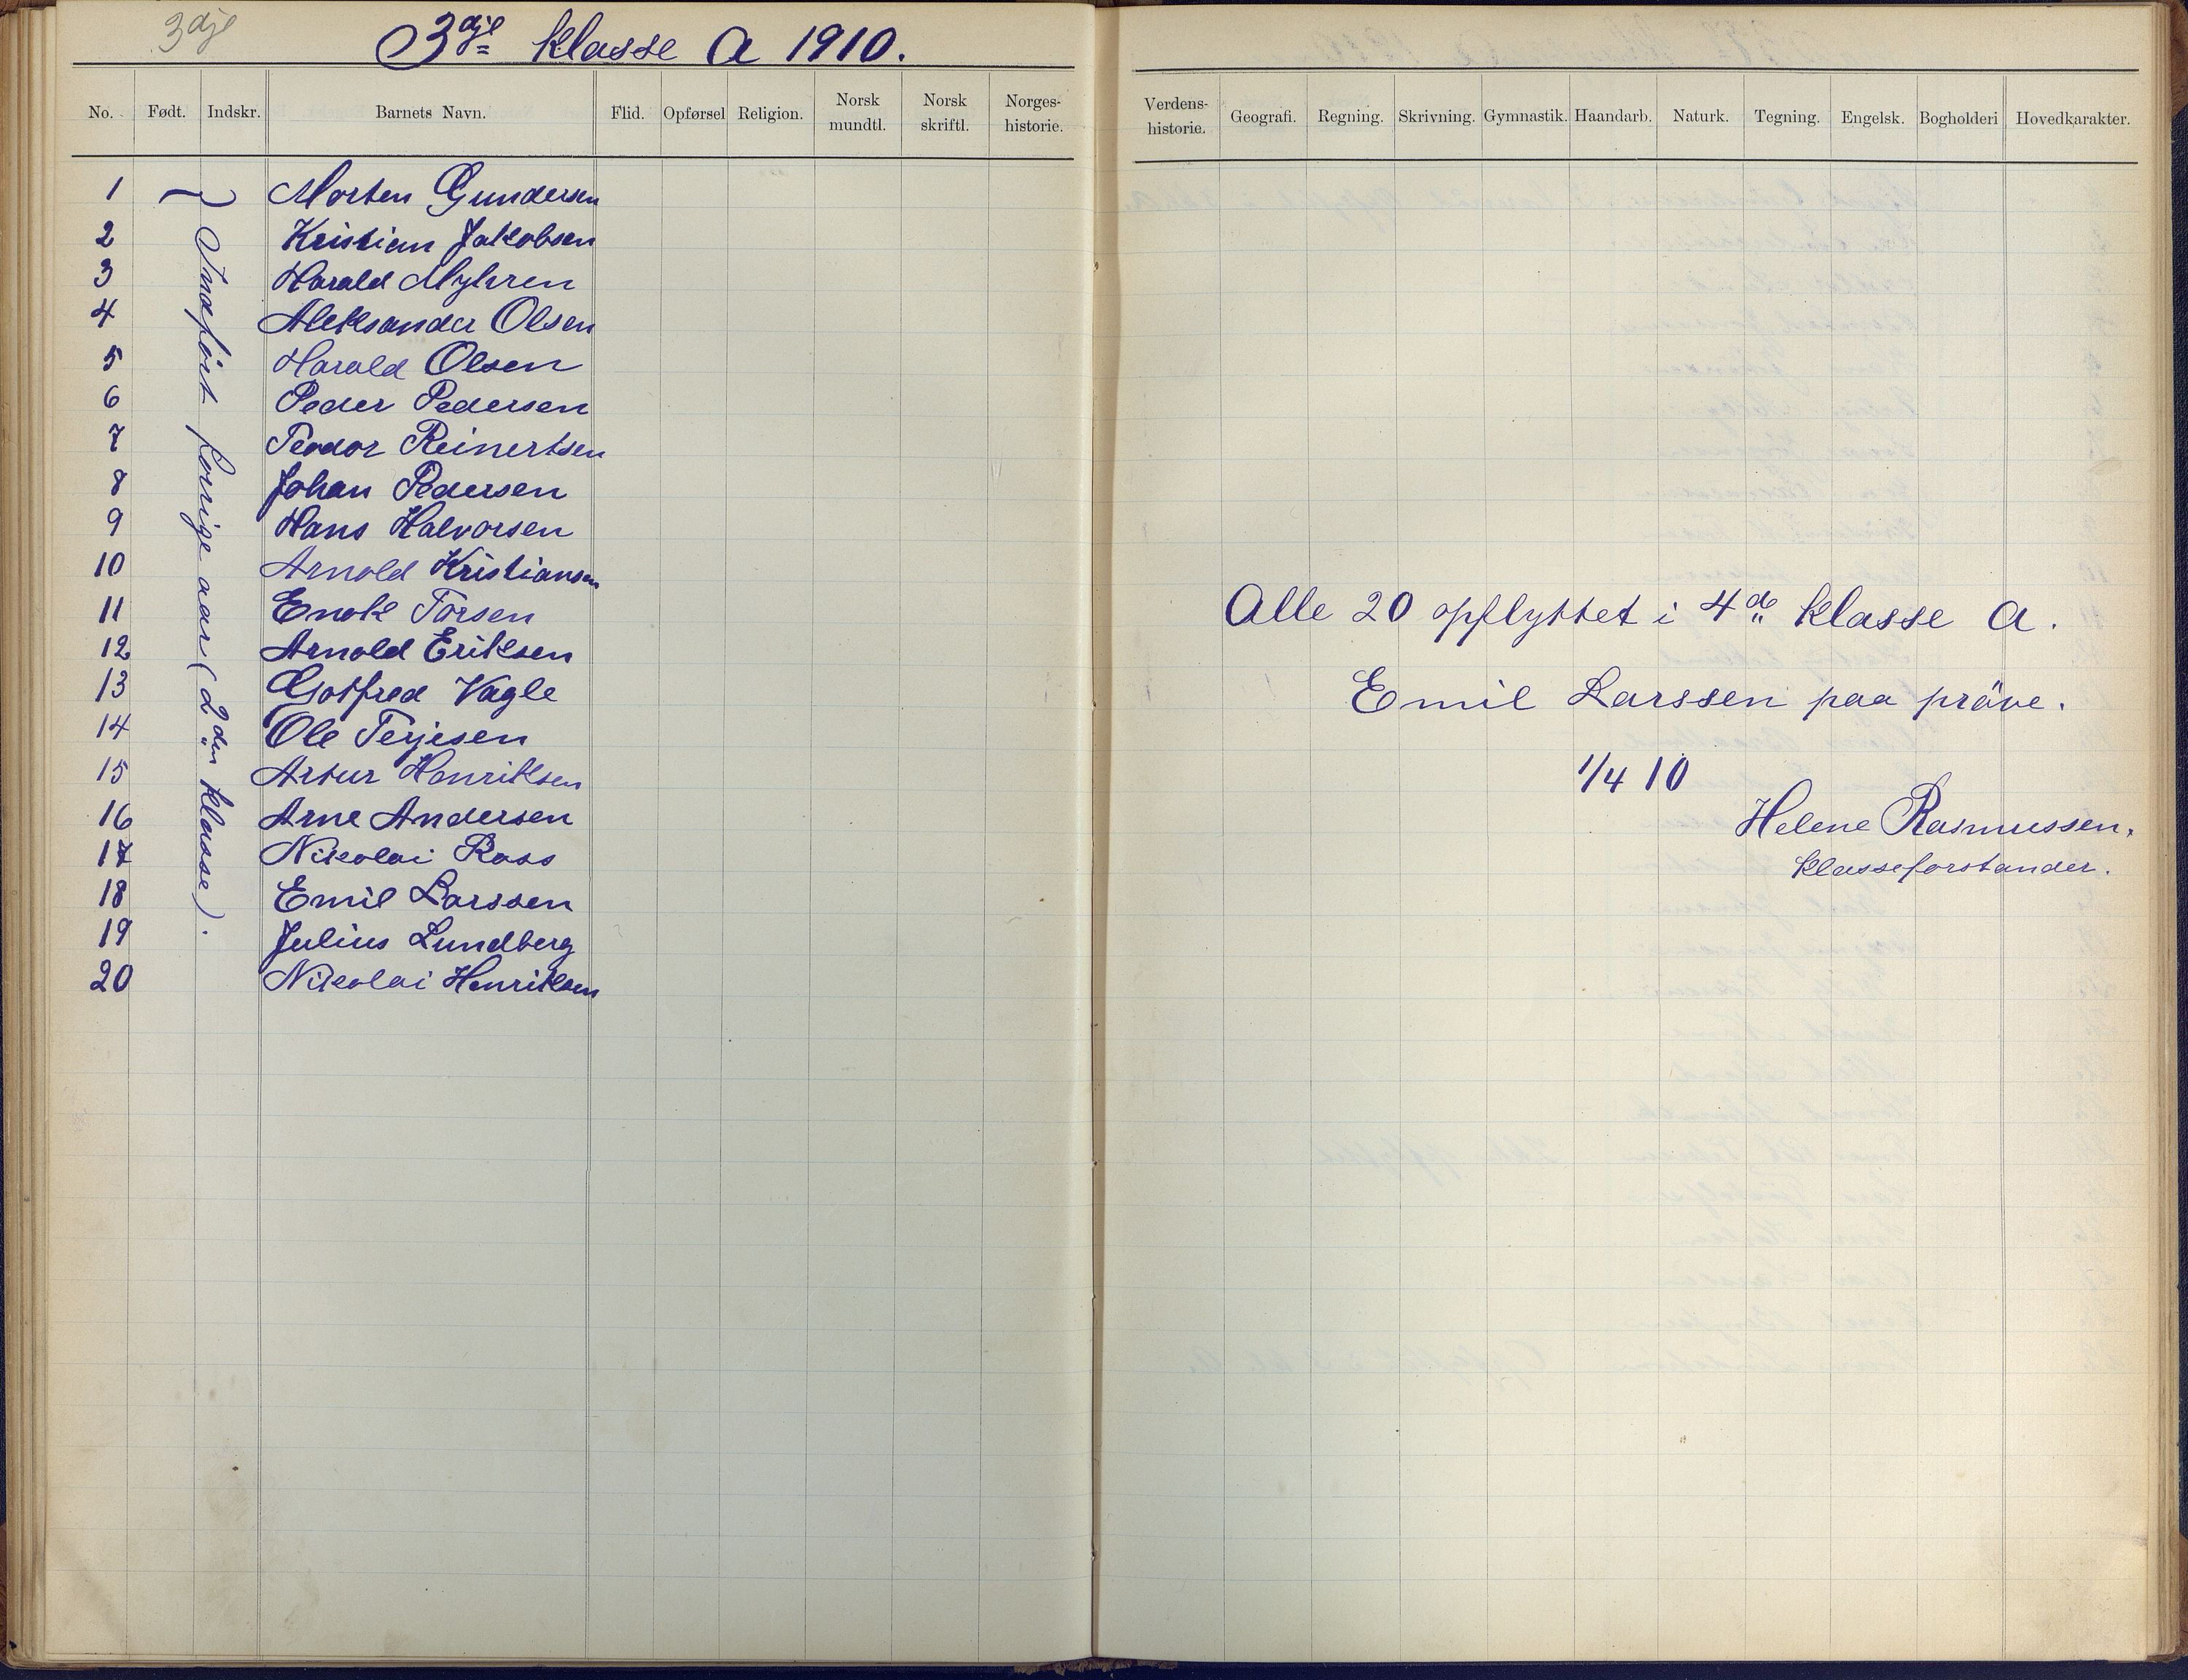 3dje
3dje klasse A 1910.
No. Født. Indskr. Barnets Navn. Flid. Opførsel Religion. Norsk mundtl. Norsk skriftl. Norges-historie.
1 Morten Gundersen
2 Kristian Jakobsen
3 Harald Myhren
4 Aleksander Olsen
5 Harald Olsen
6 Peder Pedersen
7 Teodor Reinertsen
8 Johan Pedersen
9 Hans Halvorsen
10 Arnold Kristiansen
11 Enok Torsen
12 Arnold Eriksen
13 Gotfred Vagle
14 Ole Terjesen
15 Artur Henriksen
16 Arne Andersen
17 Nikolai Ross
18 Emil Larssen
19 Julius Lundberg
20 Nikolai Henriksen
Indført forrige aar (2den klasse).
Verdens-historie. Geografi. Regning. Skrivning. Gymnastik. Haandarb. Naturk. Tegning. Engelsk. Bogholderi Hovedkarakter.
Alle 20 opflyttet i 4de klasse A.
Emil Larssen paa pröve.
1/4 10
Helene Rasmussen,
klasseforstander.